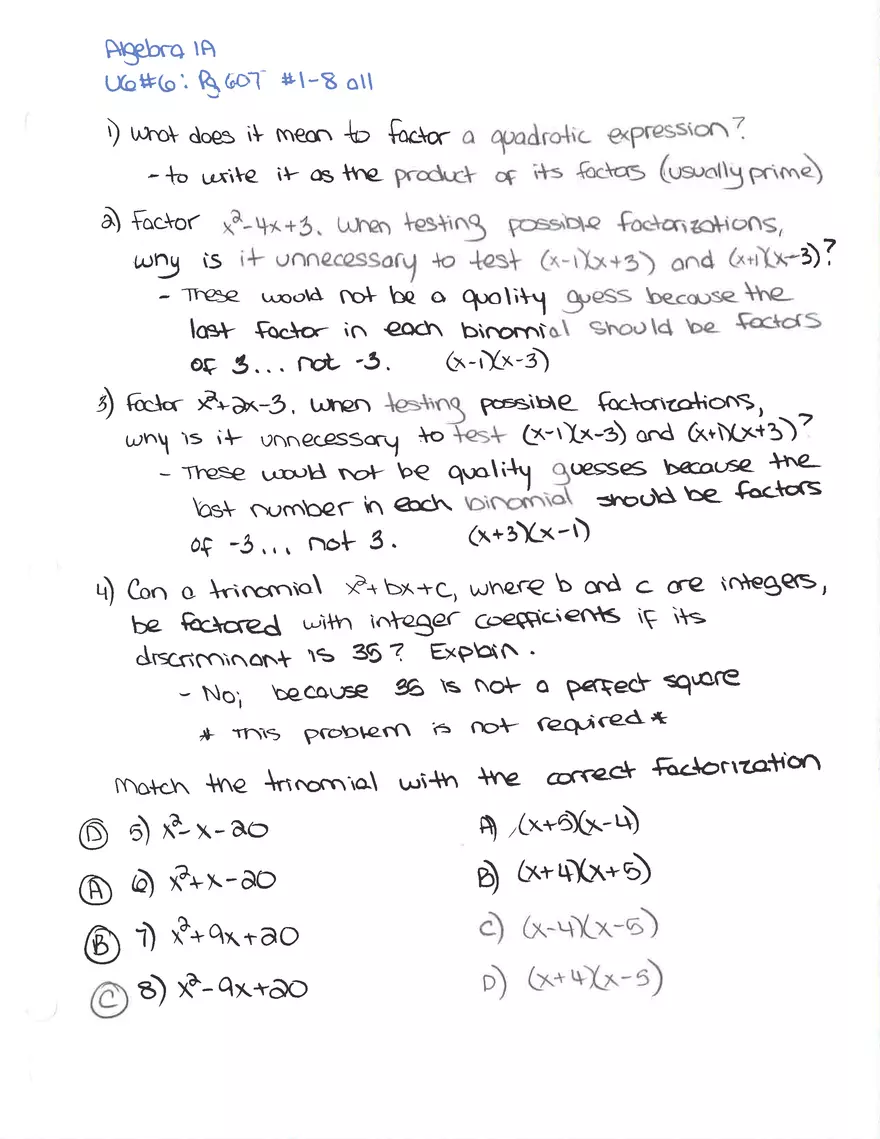 Algebra 1A
U6#6: Pg 607 #1-8 all
1) What does it mean to factor a quadratic expression?
- to write it as the product of its factors (usually prime)
2) Factor x²-4x+3. When testing possible factorizations,
why is it unnecessary to test (x-1)(x+3) and (x+1)(x-3)?
- These would not be a quality guess because the
last factor in each binomial should be factors
of 3... not -3. (x-1)(x-3)
3) Factor x²+2x-3. When testing possible factorizations,
why is it unnecessary to test (x-1)(x-3) and (x+1)(x+3)?
- These would not be quality guesses because the
last number in each binomial should be factors
of -3... not 3. (x+3)(x-1)
4) Can a trinomial x²+bx+c, where b and c are integers,
be factored with integer coefficients if its
discriminant is 35? Explain.
- No; because 35 is not a perfect square
* This problem is not required *
Match the trinomial with the correct factorization
D 5) x²-x-20 A) (x+5)(x-4)
A 6) x²+x-20 B) (x+4)(x+5)
B 7) x²+9x+20 C) (x-4)(x-5)
C 8) x²-9x+20 D) (x+4)(x-5)